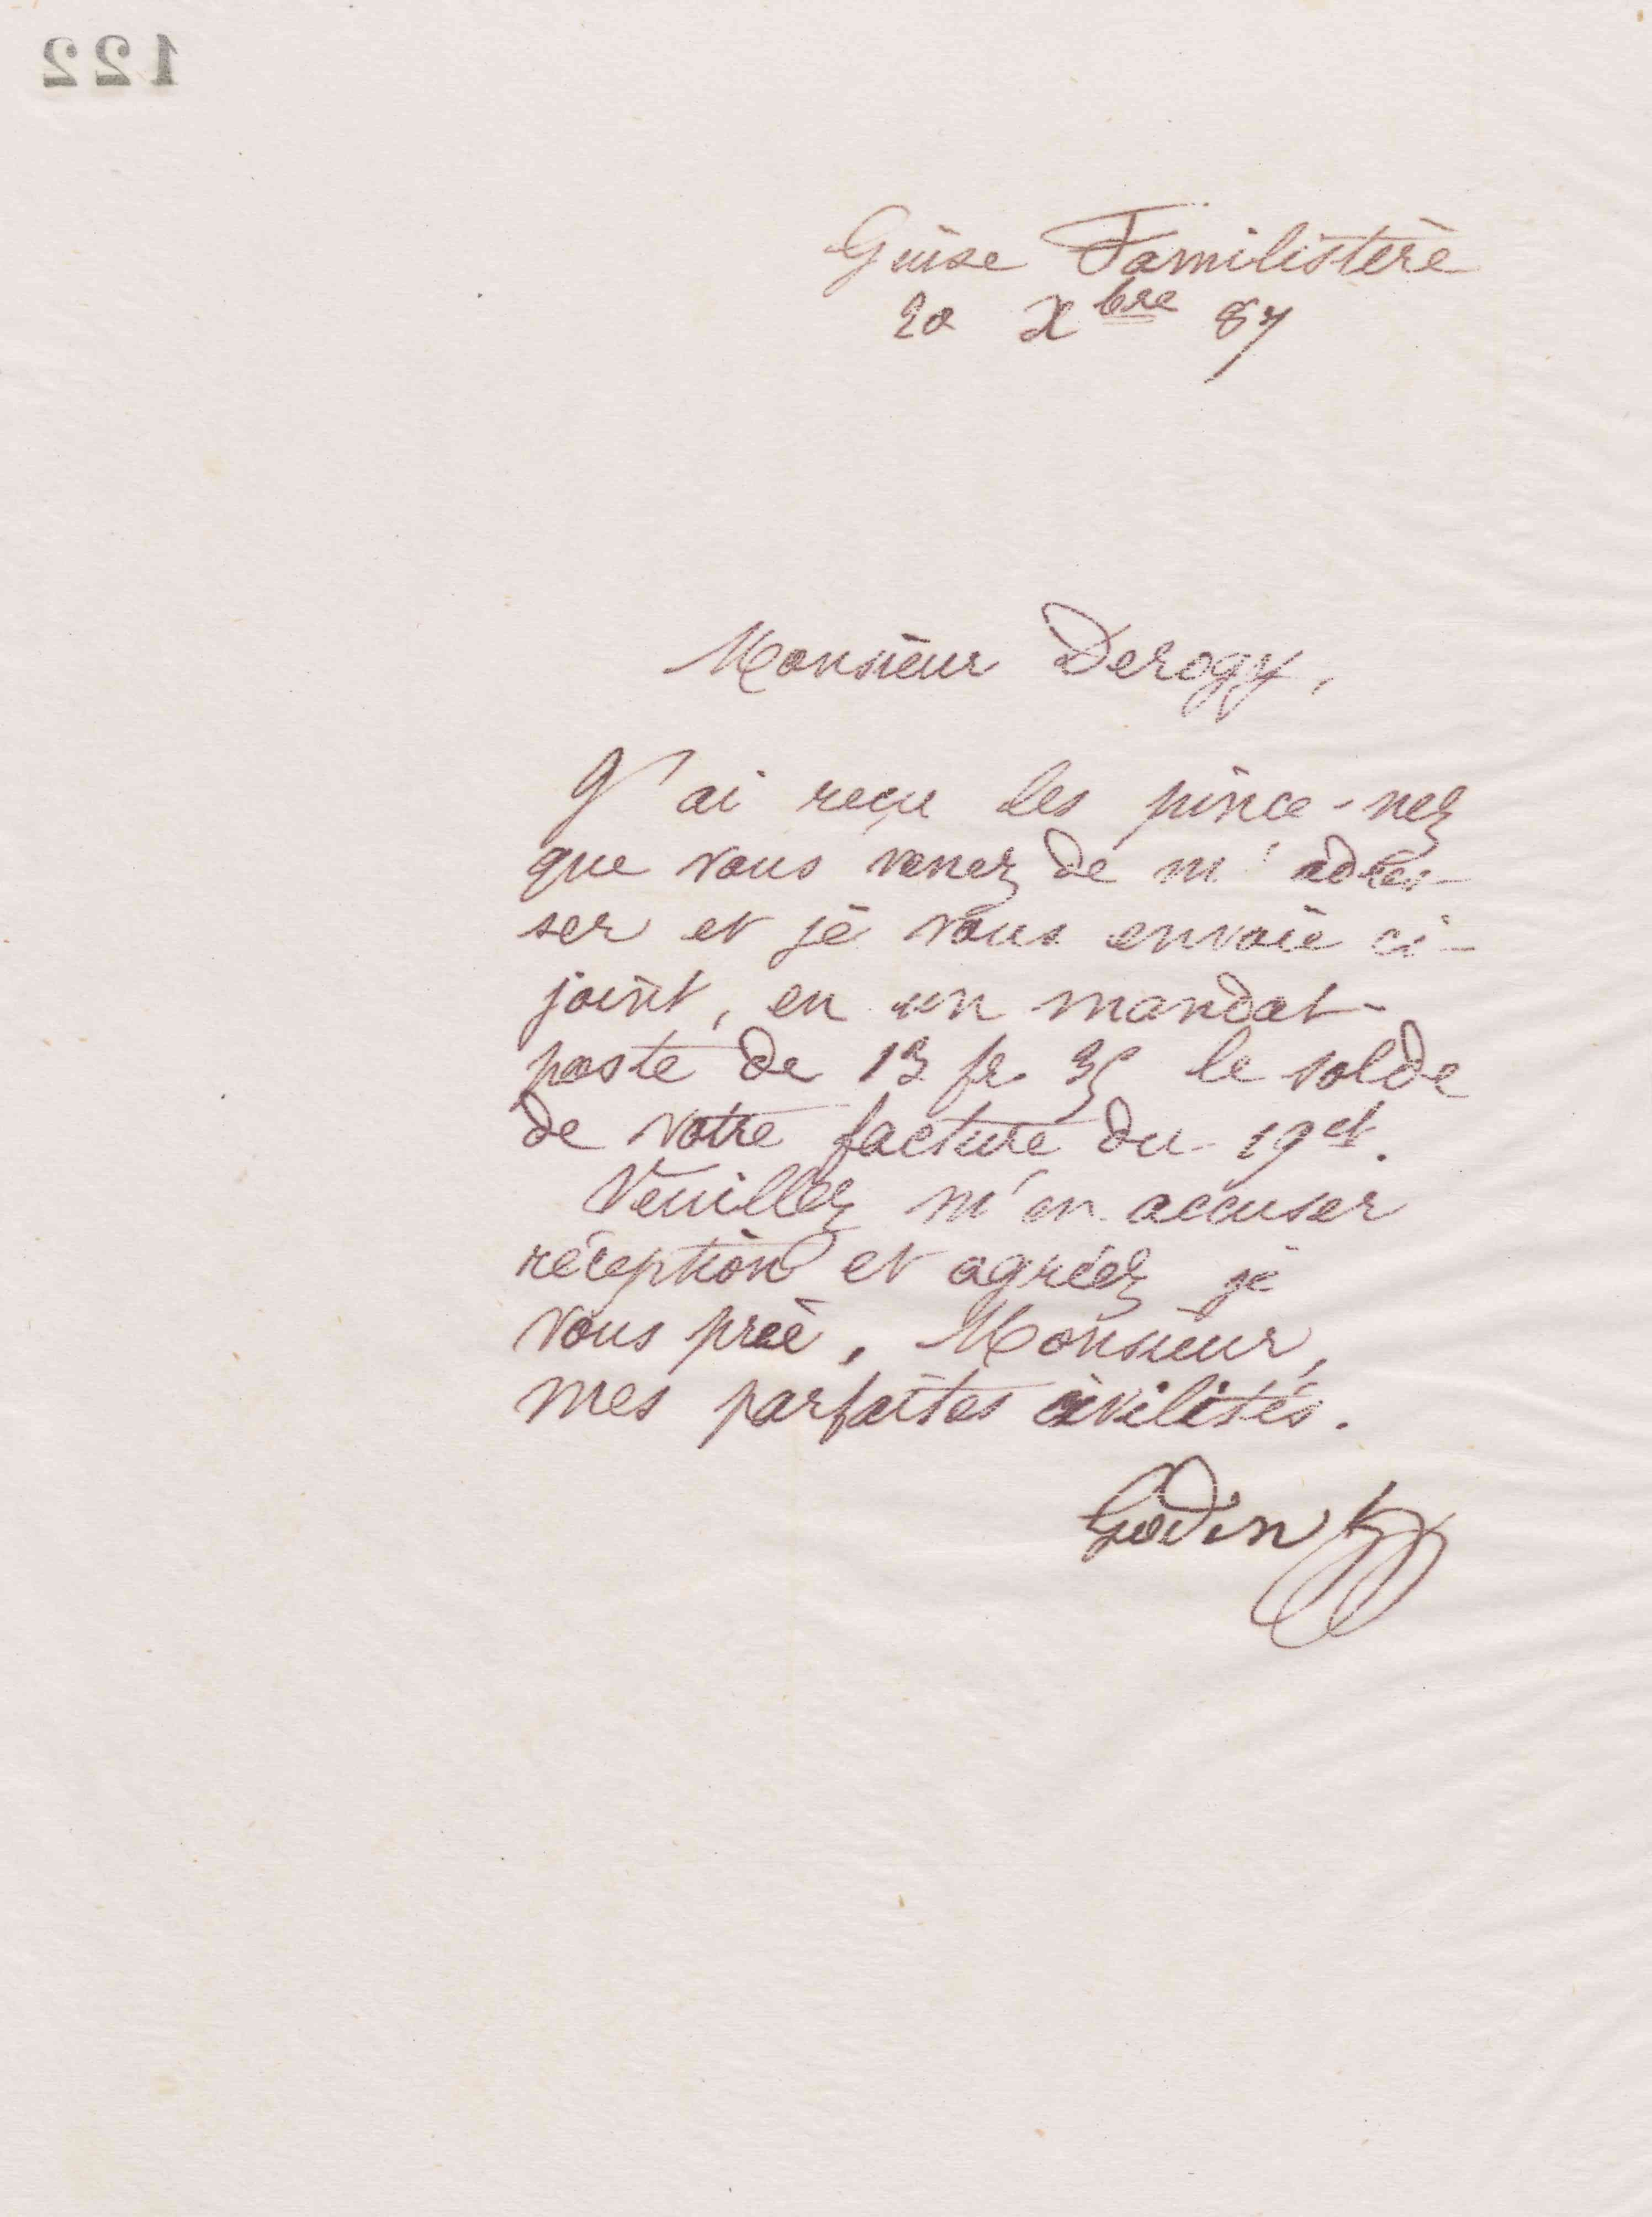 122
Guise Familistère
20 Xbre 87
Monsieur Derogy,
J'ai reçu les pince-nez
que vous venez de m'adres-
ser et je vous envoie ci-
joint, en un mandat-
poste de 13 fr. 35 le solde
de votre facture du 19 ct.
Veuillez m'en accuser
réception et agréez je
vous prie, Monsieur,
mes parfaites civilités.
Godin